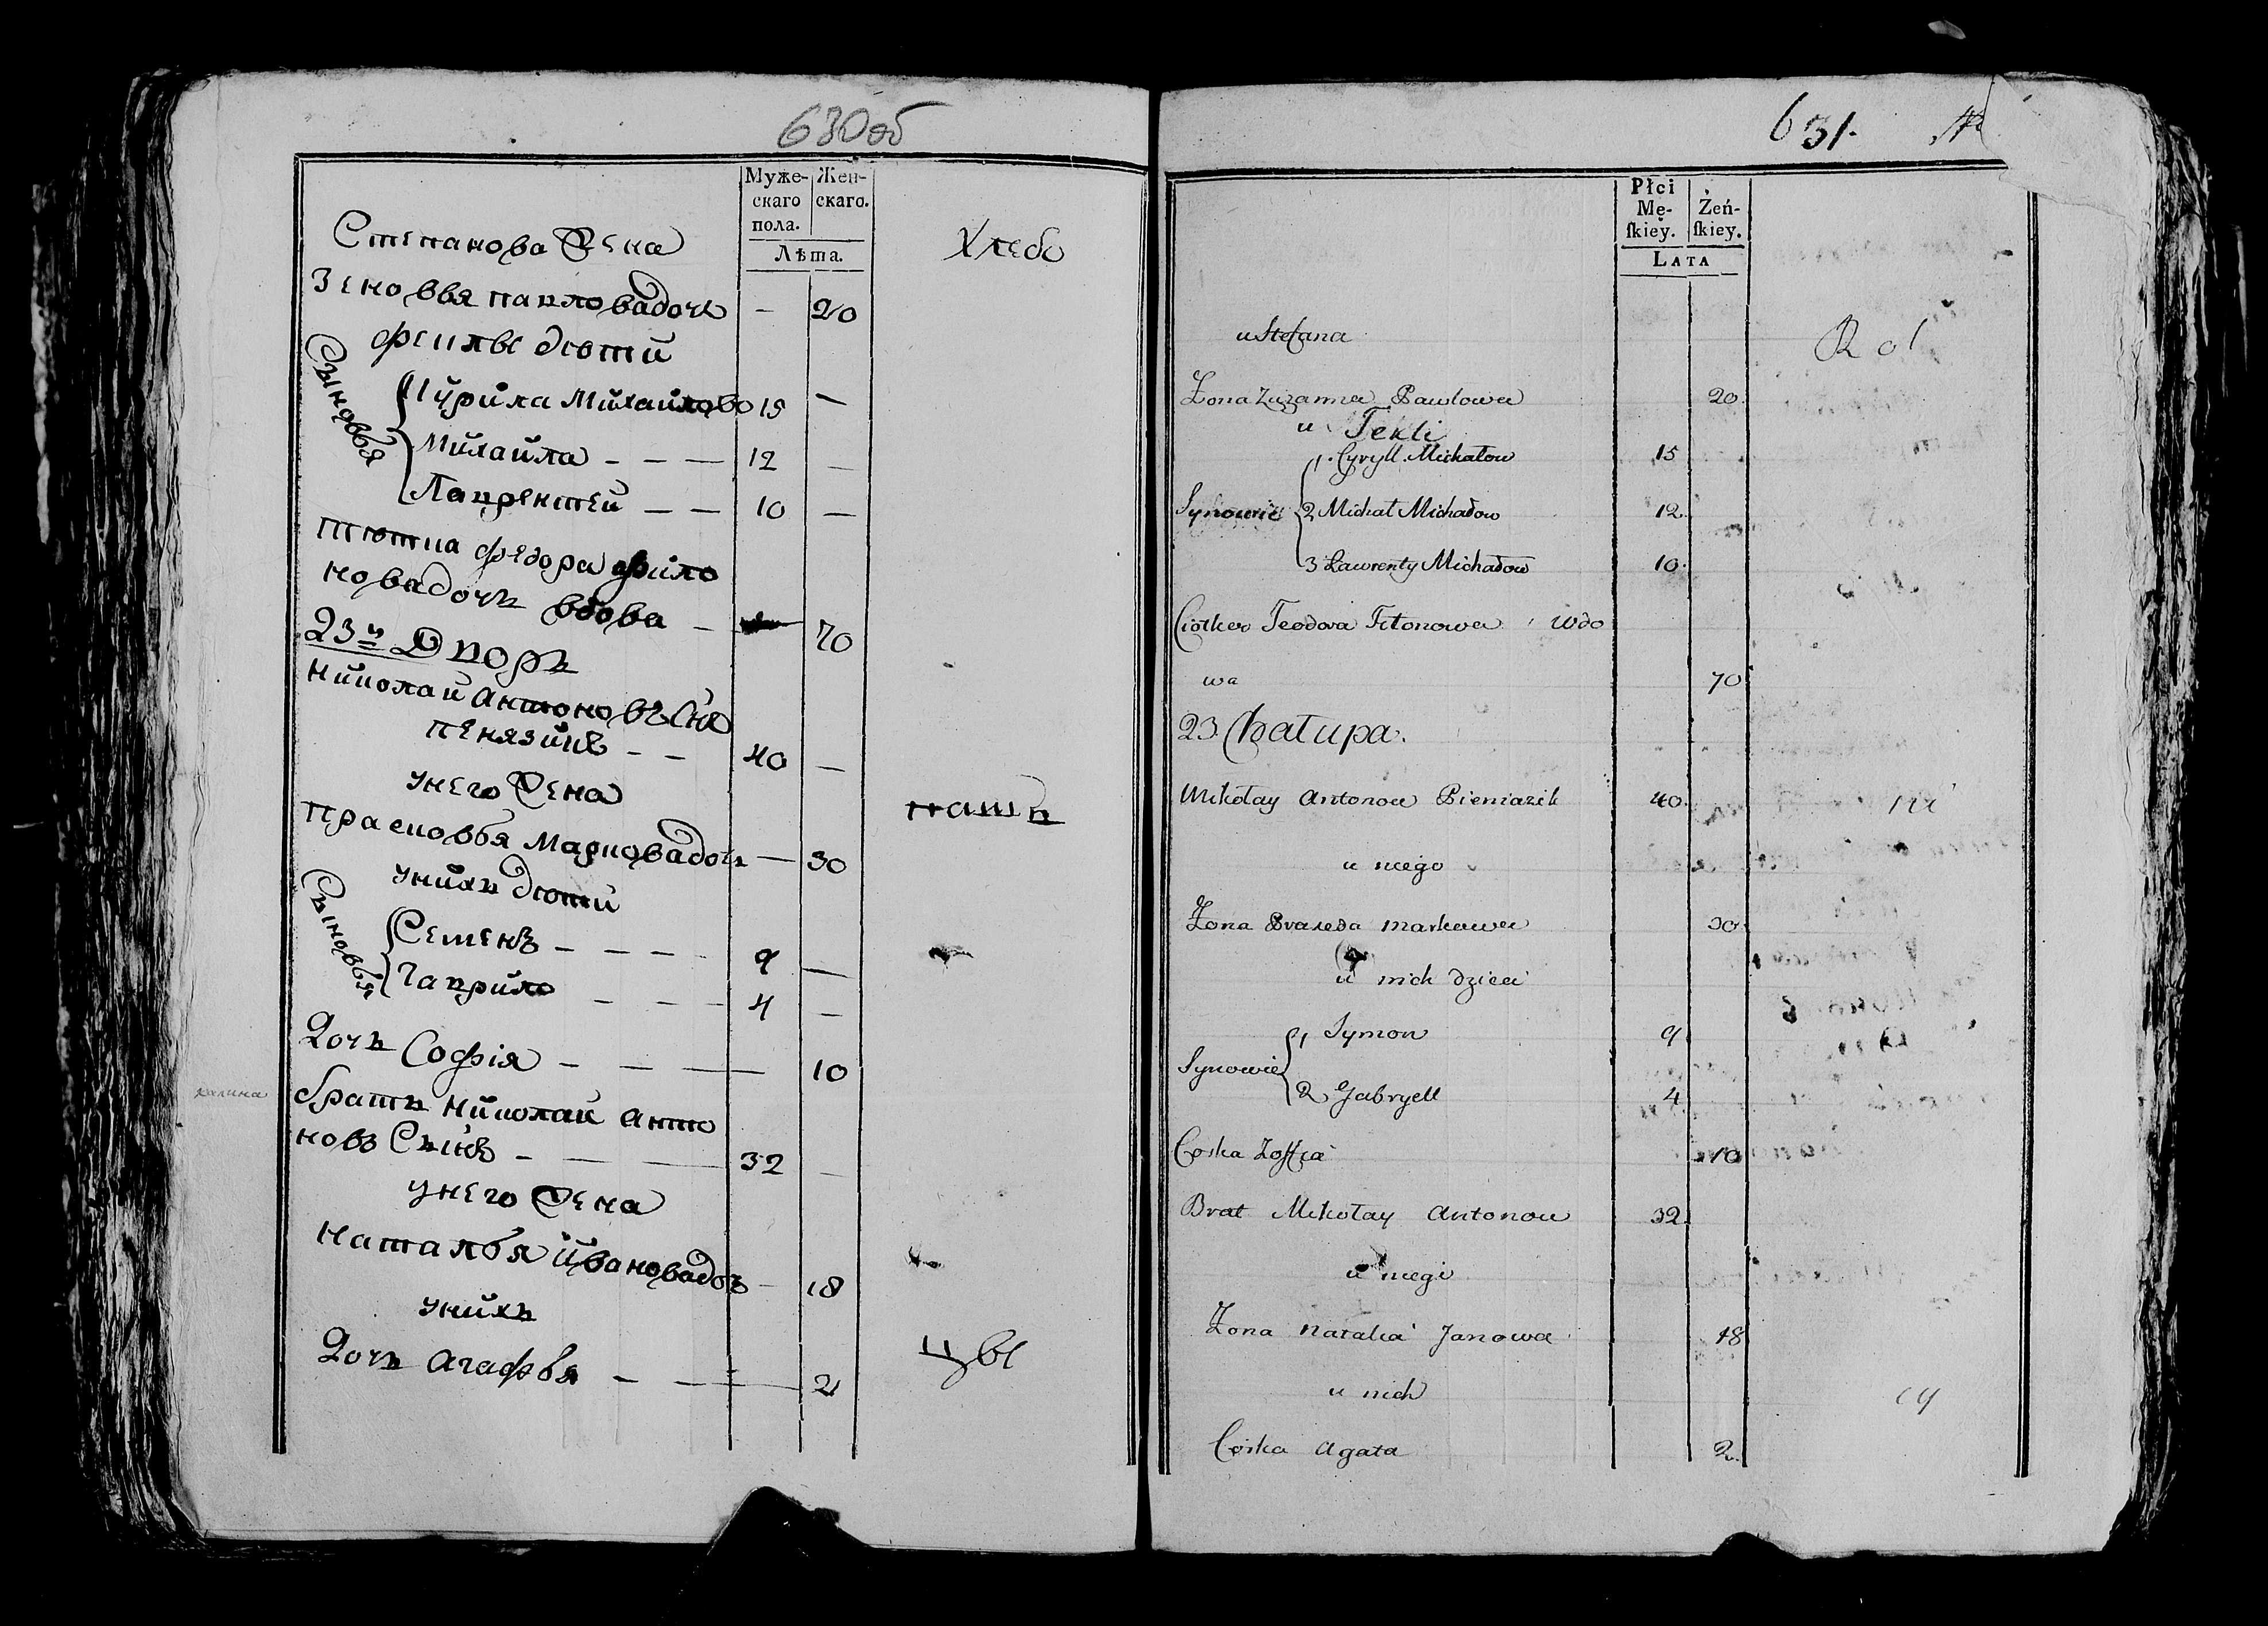 630об
Муже-
скаго
пола.
Жен-
скаго.
Лѣта.
Степанова Жена
Хлебо
Зеновья павловадочь — 20
феклы дети
Сыновья
Курила Михайлово 15 —
Михайла — — — 12 —
Лаврентей — — 10 —
тютка федора фило
новадочь вдова — 70
23й Дворъ
Николай Антоновъ Снъ
пенязикъ — — 40 —
унего Жена
пашъ
Прасковья Марковадочь — 30
унихъ дети
Сыновья
Семенъ — — — — 9 —
Гаврило — — — 4 —
Дочь Софія — — — — 10
братъ Николай Анто
новъ Сынъ — — — 32 —
унего Жена
Наталья Ивановадочь — 18
унихъ
Дочь Агафья — — — 2
цы
631.
Płci
Mę-
ſkiey.
Żeń-
ſkiey.
LATA
u Stefana
Rol
Żona Zuzanna Pawłowa 20
u Tekli
Synowie
1. Cyryll Michałow 15
2 Michał Michałow 12
3 Ławrenty Michałow 10
Ciotka Teodora Filonowa Wdo
wa 70
23. Chałupa.
Mikołay Antonow Pieniazik 40
ni
u niego
Żona Praxeda Markowa 30
u nich dzieci
Synowie
1 Symon 9
2 Gabryell 4
Corka Zoffia 10
Brat Mikołay Antonow 32
u niego
Żona Natalia Janowa 18
u nich
cy
Corka Agata 2